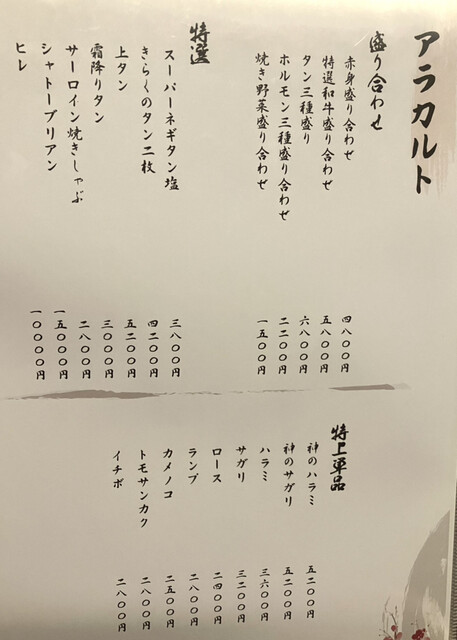 アラカルト
盛り合わせ
赤身盛り合わせ 四八〇〇円
特選和牛盛り合わせ 五八〇〇円
タン三種盛り 六八〇〇円
ホルモン三種盛り合わせ 二二〇〇円
焼き野菜盛り合わせ 一五〇〇円
特選
スーパーネギタン塩 三八〇〇円
きらくのタン二枚 四二〇〇円
上タン 五二〇〇円
霜降りタン 三〇〇〇円
サーロイン焼きしゃぶ 二八〇〇円
シャトーブリアン 一五〇〇〇円
ヒレ 一〇〇〇〇円
特上単品
神のハラミ 五二〇〇円
神のサガリ 五二〇〇円
ハラミ 三六〇〇円
サガリ 三二〇〇円
ロース 二四〇〇円
ランプ 二八〇〇円
カメノコ 二五〇〇円
トモサンカク 二八〇〇円
イチボ 二八〇〇円